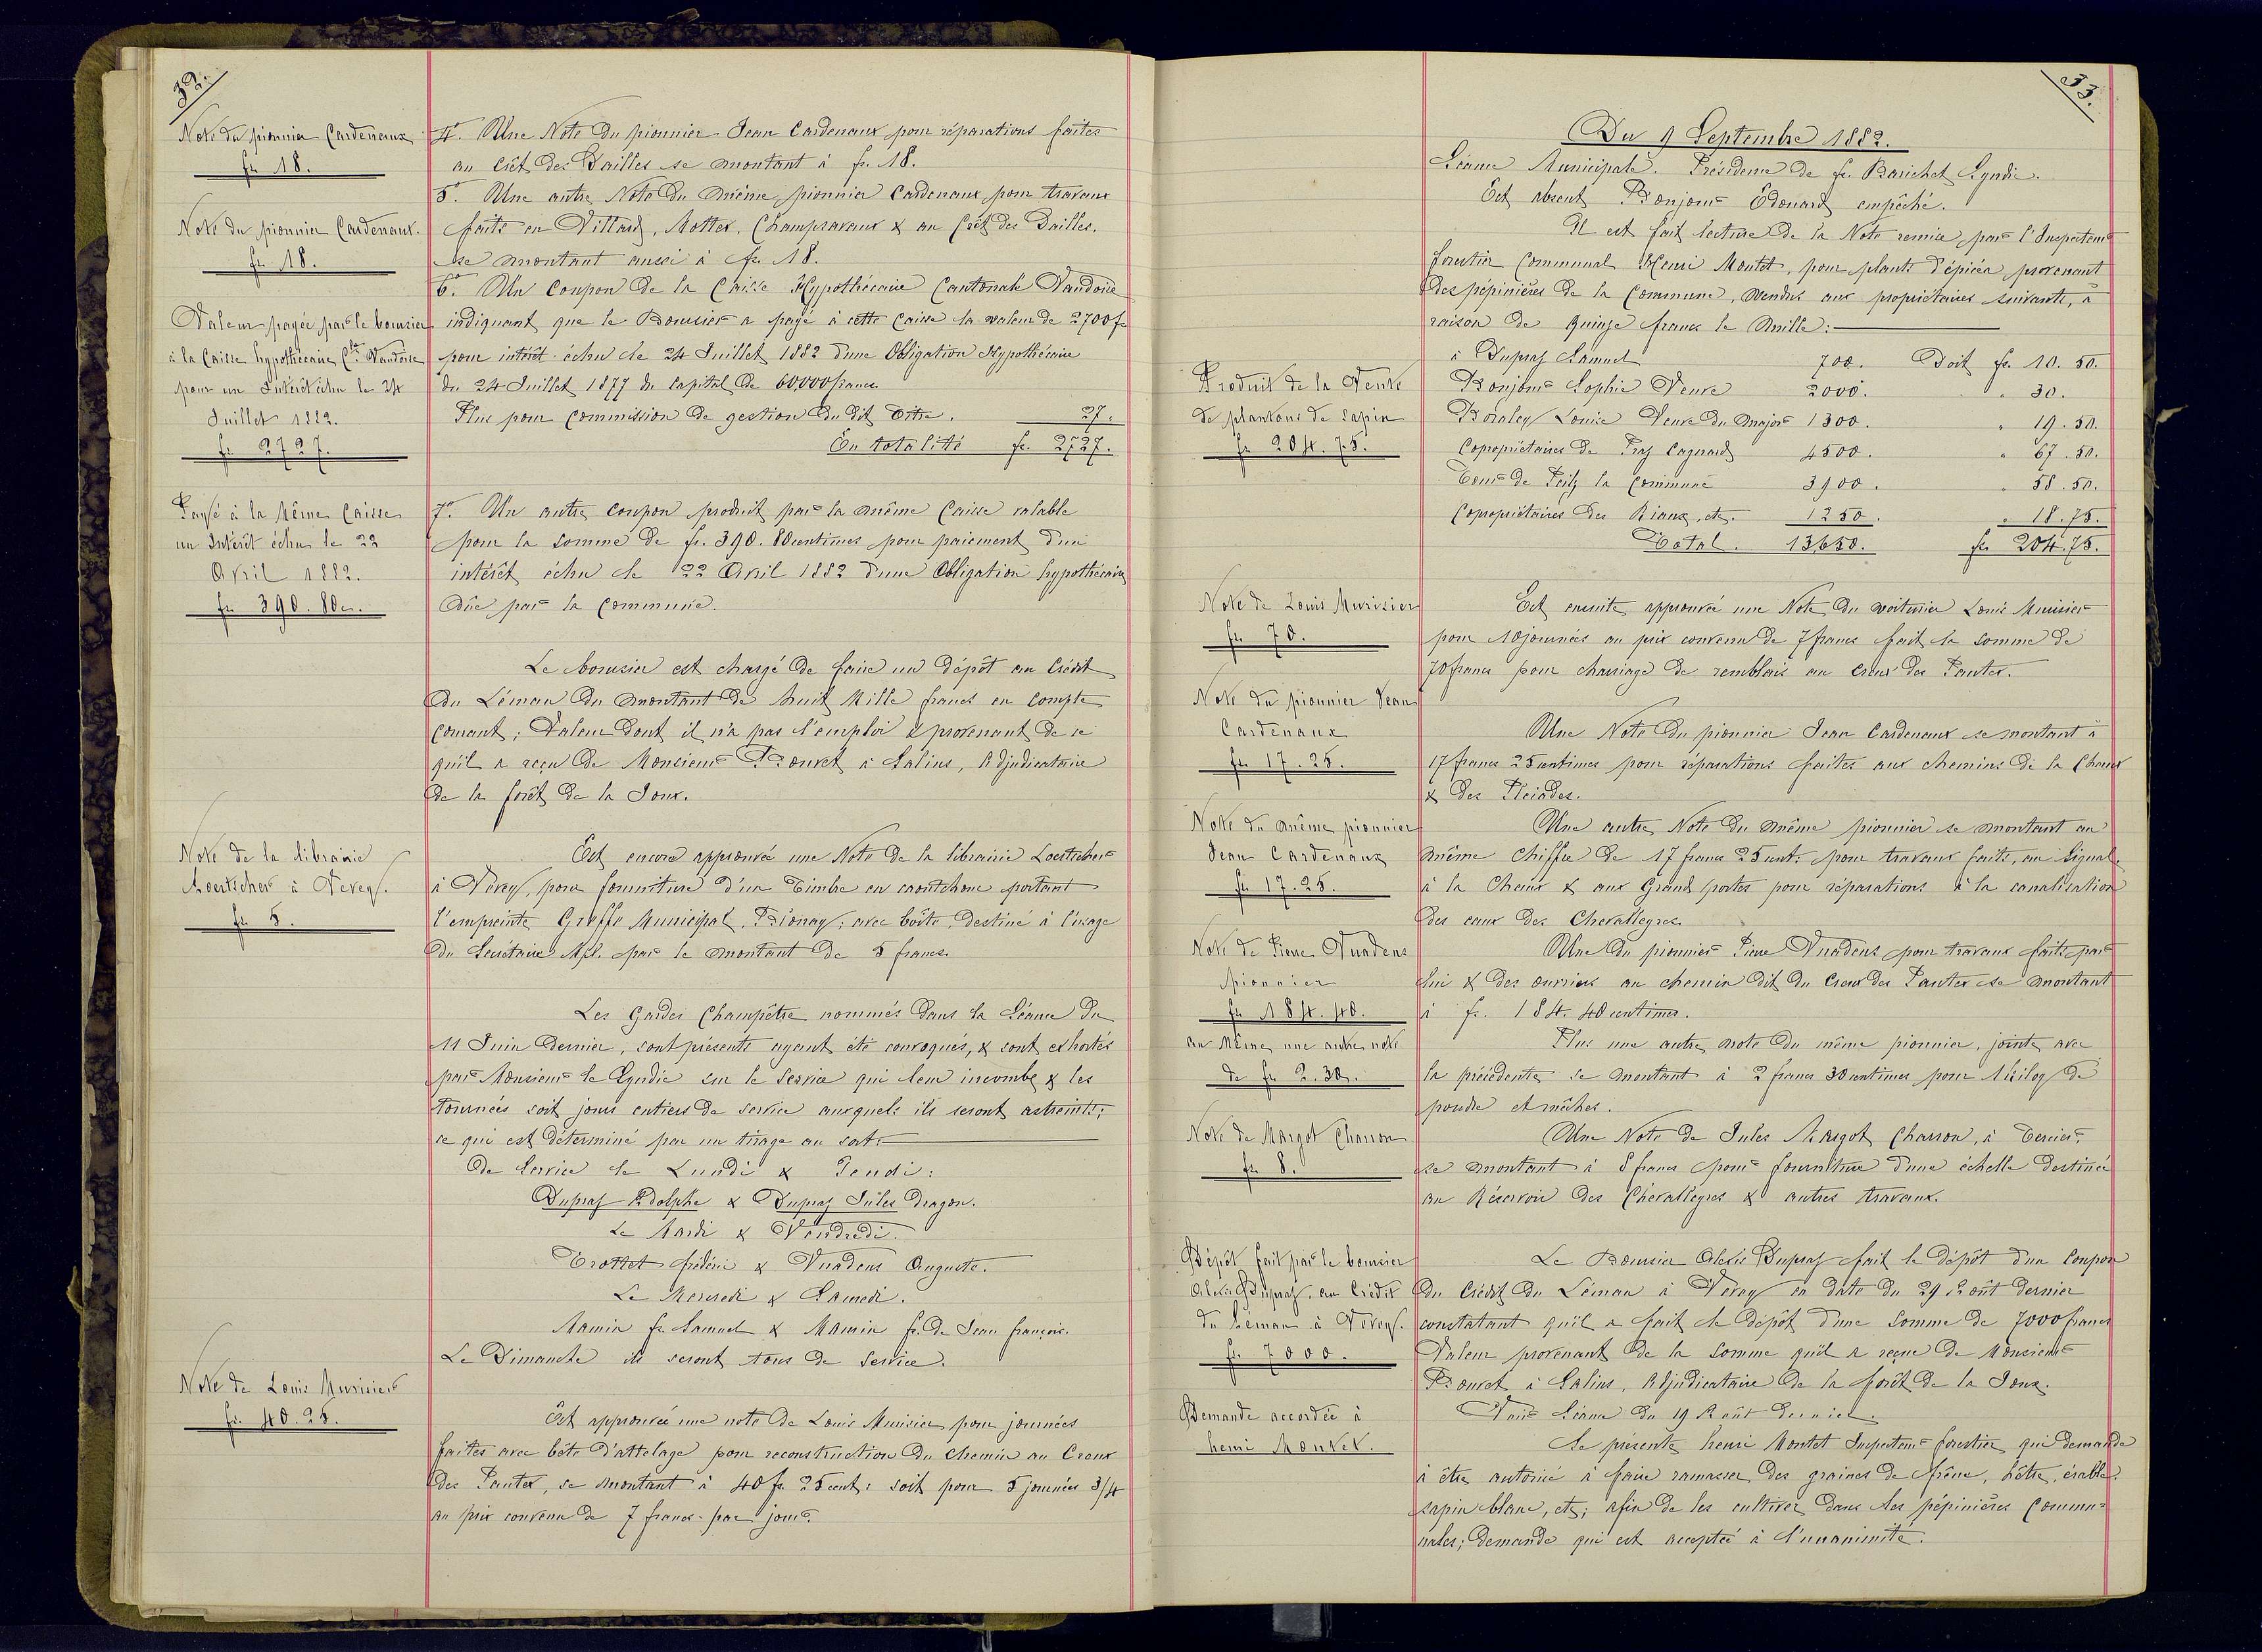 32.
Note du pionnier Cardenaux
fr. 18.
Note du pionnier Cardenaux.
fr. 18.
Valeur payée par le boursier
à la Caisse hypothécaire Cle Vaudoise
pour un Intérêt échu le 24
Juillet 1882.
fr. 2727.
Payé à la Même Caisse
un Intérêt échu le 22
Avril 1882.
fr. 390. 80c.
Note de la librairie
Loertscher à Vevey.
fr. 5.
Note de Louis Murisier
fr. 40.25.
4°. Une Note du pionnier Jean Cardenaux pour réparations faites
au Crêt des Dailles se montant à fr. 18.
5°. Une autre Note du même pionnier Cardenaux pour travaux
faits en Villard, Mottex, Champsavaux & au Crêt des Dailles,
se montant aussi à fr. 18.
6°. Un Coupon de la Caisse Hypothécaire Cantonale Vaudoise
indiquant que le Boursier a payé à cette Caisse la valeur de 2700 fr
pour intérêt échu le 24 Juillet 1882 d'une Obligation Hypothécaire
du 24 Juillet 1877 du Capital de 60000 francs
Plus pour Commission de gestion du dit titre. 27.
En totalité fr. 2727.
7°. Un autre Coupon produit par la même Caisse valable
pour la Somme de fr. 390. 80 centimes pour paiement d'un
intérêt échu le 22 Avril 1882 d'une Obligation hypothécaire
dûe par la Commune.
Le boursier est chargé de faire un dépôt au Crédit
du Léman du montant de huit Mille francs en Compte
Courant; Valeur dont il n'a pas l'emploi & provenant de ce
qu'il a reçu de Monsieur Bouvet à Salins, Adjudicataire
de la forêt de la Joux.
Est encore approuvée une Note de la librairie Loertscher
à Vevey, pour fourniture d'un Timbre en caoutchouc portant
l'empreinte Greffe Municipal, Blonay; avec boîte, destiné à l'usage
du Secrétaire Mpl. par le montant de 5 francs.
Les Gardes Champêtre nommés dans la Séance du
11 Juin dernier, sont présents ayant été convoqués, & sont exhortés
par Monsieur le Syndic sur le Service qui leur incombe & les
Tournées soit jours entiers de Service auxquels ils seront astreints;
ce qui est déterminé par un tirage au sort.
De Service le Lundi & Jeudi:
Dupraz Adolphe & Dupraz Jules Dragon.
Le Mardi & Vendredi.
Trottet frédéric & Vuadens Auguste.
Le Mercredi & Samedi.
Mamin fs. Samuel & Mamin fs. de Jean françois.
Le Dimanche ils seront tous de Service.
Est approuvée une note de Louis Murisier pour journées
faites avec bête d'attelage pour reconstruction du Chemin au Creux
des Pautex, se montant à 40 fr. 25 cent: soit pour 5 journées 3/4
au prix convenu de 7 francs par jour.
33.
Produit de la Vente
de plantons de Sapin
fr 204. 75.
Note de Louis Murisier
fr. 70.
Note du pionnier Jean
Cardenaux
fr. 17.25.
Note du même pionnier
Jean Cardenaux
fr. 17.25.
Note de Pierre Vuadens
Pionnier
fr 184. 40.
au Même une autre note
de fr 2. 30.
Note de Margot Charron
fr 8.
Dépôt fait par le boursier
Alexis Dupraz, au Crédit
du Léman à Vevey.
fr. 7000.
Demande accordée à
henri Montet.
Du 9 Septembre 1882.
Séance Municipale. Présidence de fr. Barichet Syndic.
Est absent Bonjour Edouard empêché.
Il est fait lecture de la Note remise par l'Inspecteur
forestier Communal Henri Montet, pour plants d'épicéa provenant
des pépinières de la Commune, vendus aux propriétaires suivants, à
raison de quinze francs le Mille:
à Dupraz Samuel 700. Doit fr. 10. 50.
Bonjour Sophie Veuve 2000. " 30.
Boraley Louise Veuve du Major 1300. " 19. 50.
Copropriétaires de Praz Cagnard 4500. " 67. 50.
Cour de Feily la Commune 3900. " 58. 50.
Copropriétaires des Riaux, etc. 1250. " 18. 75.
Total. 13650. fr 204.75.
Est ensuite approuvée une Note du voiturier Louis Murisier
pour 10 journées au prix convenu de 7 francs fait la Somme de
70 francs pour charriage de remblais au Creux des Pautex.
Une Note du pionnier Jean Cardenaux se montant à
17 francs 25 centimes pour réparations faites aux chemins de la Cheux
& des Pleiades.
Une autre Note du même pionnier se montant au
même Chiffre de 17 francs 25 cent: pour travaux faits, au Signal
à la Cheux & aux Grands portes pour réparations à la canalisation
des eaux des Chevalleyres.
Une du pionnier Pierre Vuadens pour travaux faits par
lui & des ouvriers au chemin dit du Creux des Pautex se montant
à fr. 184. 40 centimes.
Plus une autre note du même pionnier, jointe avec
la précédente se montant à 2 francs 30 centimes pour 1 kilog de
poudre et mèches.
Une Note de Jules Margot Charron, à Tercier,
se montant à 8 francs pour fourniture d'une échelle destinée
au Réservoir des Chevalleyres & autres travaux.
Le Boursier Alexis Dupraz fait le dépôt d'un Coupon
du Crédit du Léman à Vevey en date du 29 Août dernier
constatant qu'il a fait le dépôt d'une Somme de 7000 francs
Valeur provenant de la Somme qu'il a reçue de Monsieur
Bouvet à Salins, Adjudicataire de la forêt de la Joux.
Séance du 19 Août dernier.
Se présente henri Montet Inspecteur forestier qui demande
à être autorisé à faire ramasser des graines de frêne, hêtre, érable,
sapin blanc, etc; afin de les cultiver dans les pépinières Commu=
nales; demande qui est acceptée à l'unanimité.